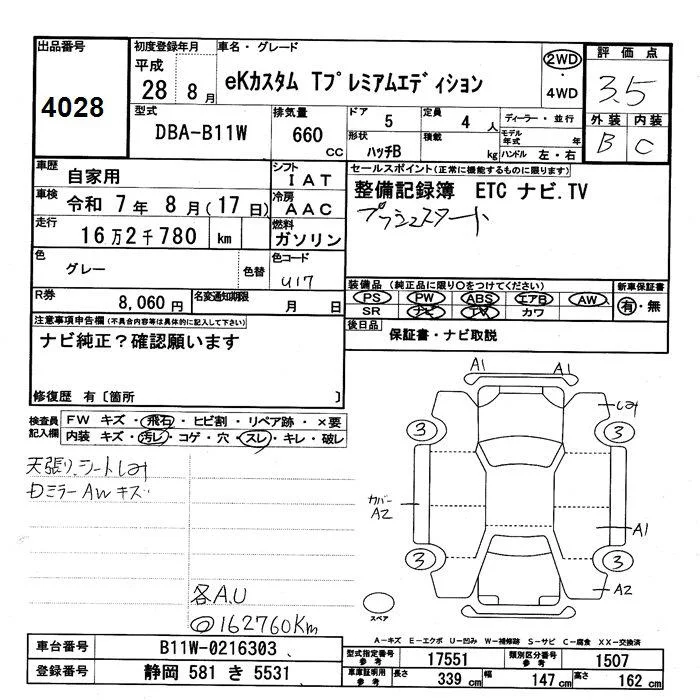 出品番号
4028
初度登録年月
平成
28 8 月
車名・グレード
eKカスタム Tプレミアムエディション
2WD
・
4WD
評価点
3.5
外装 内装
B C
型式
DBA-B11W
排気量
660
CC
ドア
5
定員
4 人
形状
ハッチB
積載
kg
ディーラー・並行
モデル年式 年
ハンドル 左・右
車歴
自家用
シフト
IAT
車検
令和 7 年 8 月(17 日)
冷房
AAC
走行
16万2千780 km
燃料
ガソリン
色
グレー
色替
色コード
U17
R券
8,060 円
名変通知期限
月 日
セールスポイント(正常に機能するものに限ります)
整備記録簿 ETC ナビ.TV
プッシュスタート
装備品(純正品に限り○をつけてください)
PS PW ABS エアB AW
SR ナビ TV カワ
新車保証書
有・無
後日品
保証書・ナビ取説
注意事項申告欄(不具合内容等は具体的に記入して下さい)
ナビ純正?確認願います
修復歴 有〔箇所 〕
検査員記入欄
FW キズ・飛石・ヒビ割・リペア跡・×要
内装 キズ・汚レ・コゲ・穴・スレ・キレ・破レ
天張り.シートしみ
Dミラー AW キズ
各A.U
@162760Km
A1 A1
しみ
3 3
カバー
A2
A1
3 3
A2
スペア
A-キズ E-エクボ U-凹み W-補修跡 S-サビ C-腐食 XX-交換済
車台番号
B11W-0216303
登録番号
静岡 581 き 5531
型式指定番号
参考
17551
類別区分番号
参考
1507
車庫証明用
参考
長さ
339 cm
幅
147 cm
高さ
162 cm